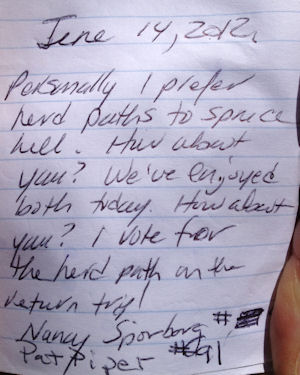 June 14, 2012
Personally I prefer
herd paths to spruce
hell. How about
you? We've enjoyed
both today. How about
you? I vote for
the herd path on the
return trip!
Nancy Sporborg #
Pat Piper